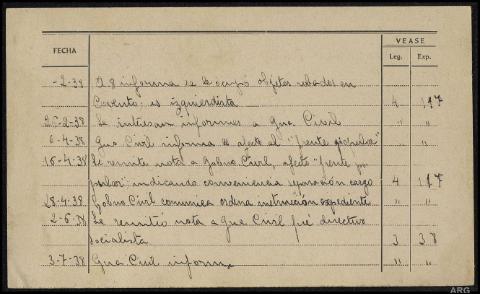 VEASE
FECHA Leg. Exp.
-2-38 informa se le ocupó objetos robados en
Convento: es izquierdista 4 117
25-2-38 Se interesan informes a Gua. Civil " "
6-4-38 Gua. Civil informa es afecto al "frente popular" " "
15-4-38 Se remite nota a Gobno. Civil, afecto "frente po-
pular" indicando conveniencia separación cargo 4 117
28-4-38 Gobno. Civil comunica ordena instrucción expediente " "
2-6-38 Se remitió nota a Gua. Civil fué directivo
socialista 3 38
3-7-38 Gua. Civil informa " "
ARG